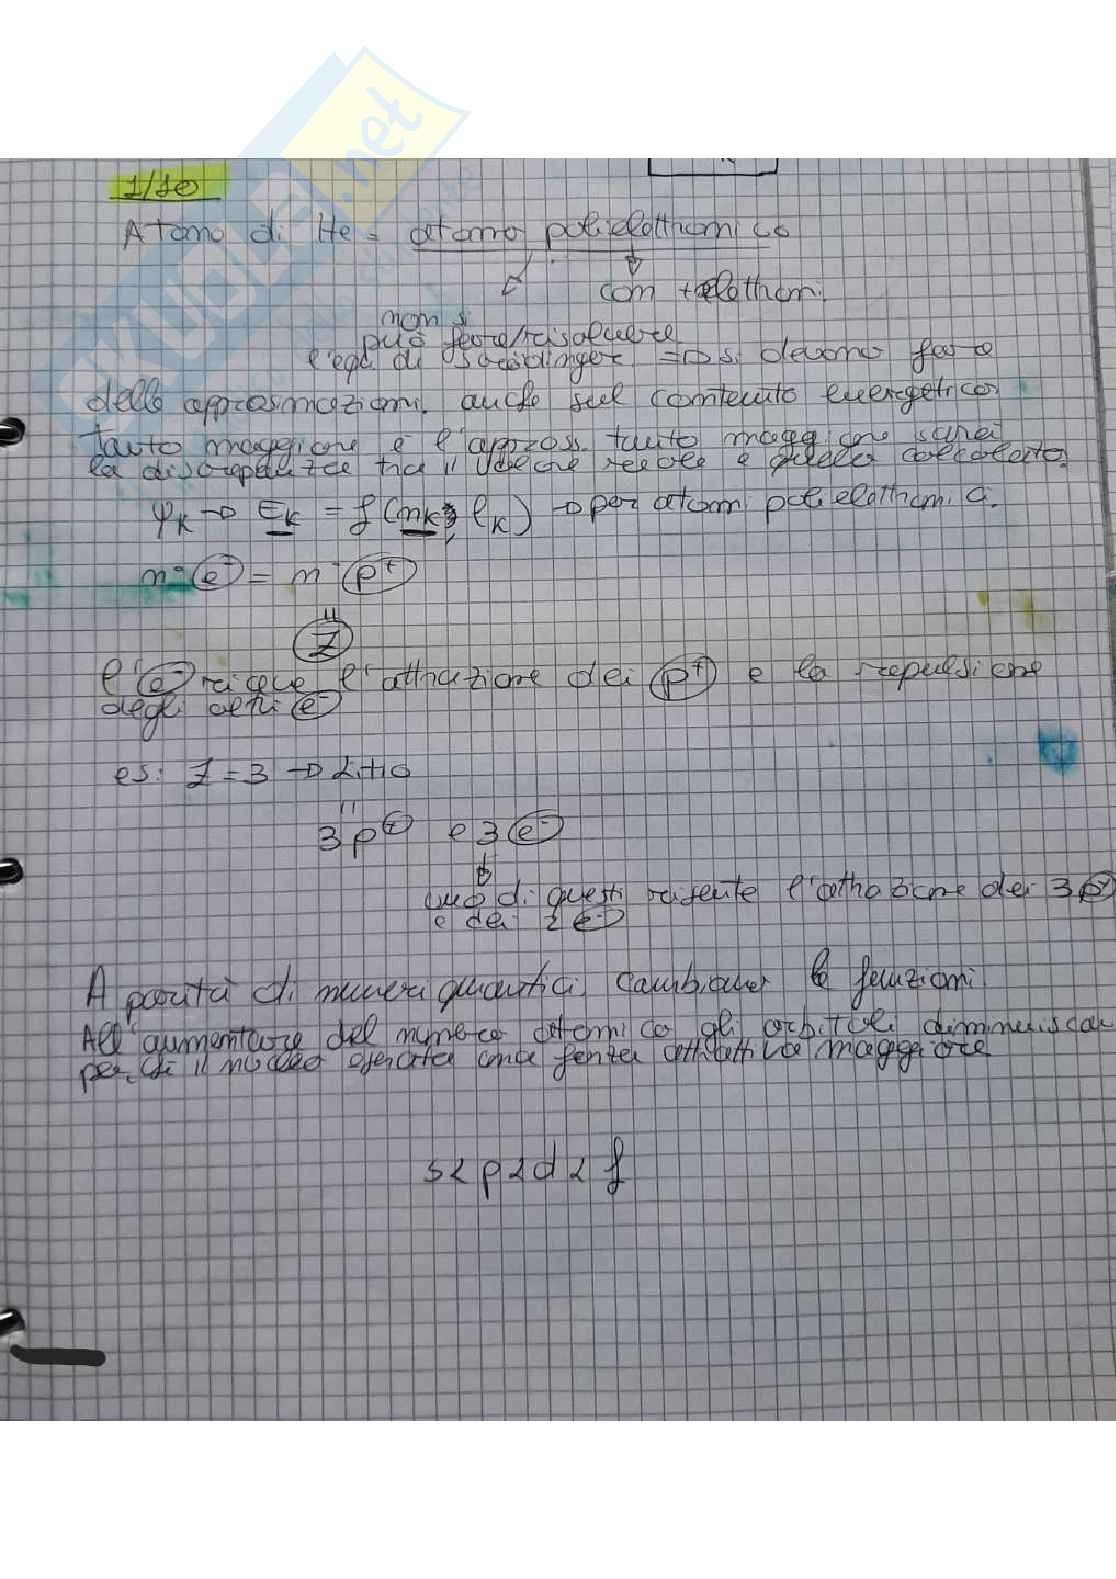 SKUOLA.net
1/10
Atomo di He = atomo polielettronico
con + elettroni
non si
può fare/risolvere
l'eq. di Schrödinger => si devono fare
delle approssimazioni anche sul contenuto energetico
tanto maggiore è l'appross. tanto maggiore sarà
la discrepanza tra il valore reale e quello calcolato.
ψK → EK = f(nK, lK) → per atomi polielettronici
n° e⁻ = n° p⁺
"
Z
l'e⁻ riceve l'attrazione dei p⁺ e la repulsione
degli altri e⁻
es: Z = 3 → Litio
"
3p⁺ e 3 e⁻
uno di questi risente l'attrazione dei 3p⁺
e dei 2 e⁻
A parità di numeri quantici, cambiano le funzioni
All'aumentare del numero atomico gli orbitali diminuiscono
perché il nucleo esercita una forza attrattiva maggiore
s < p < d < f